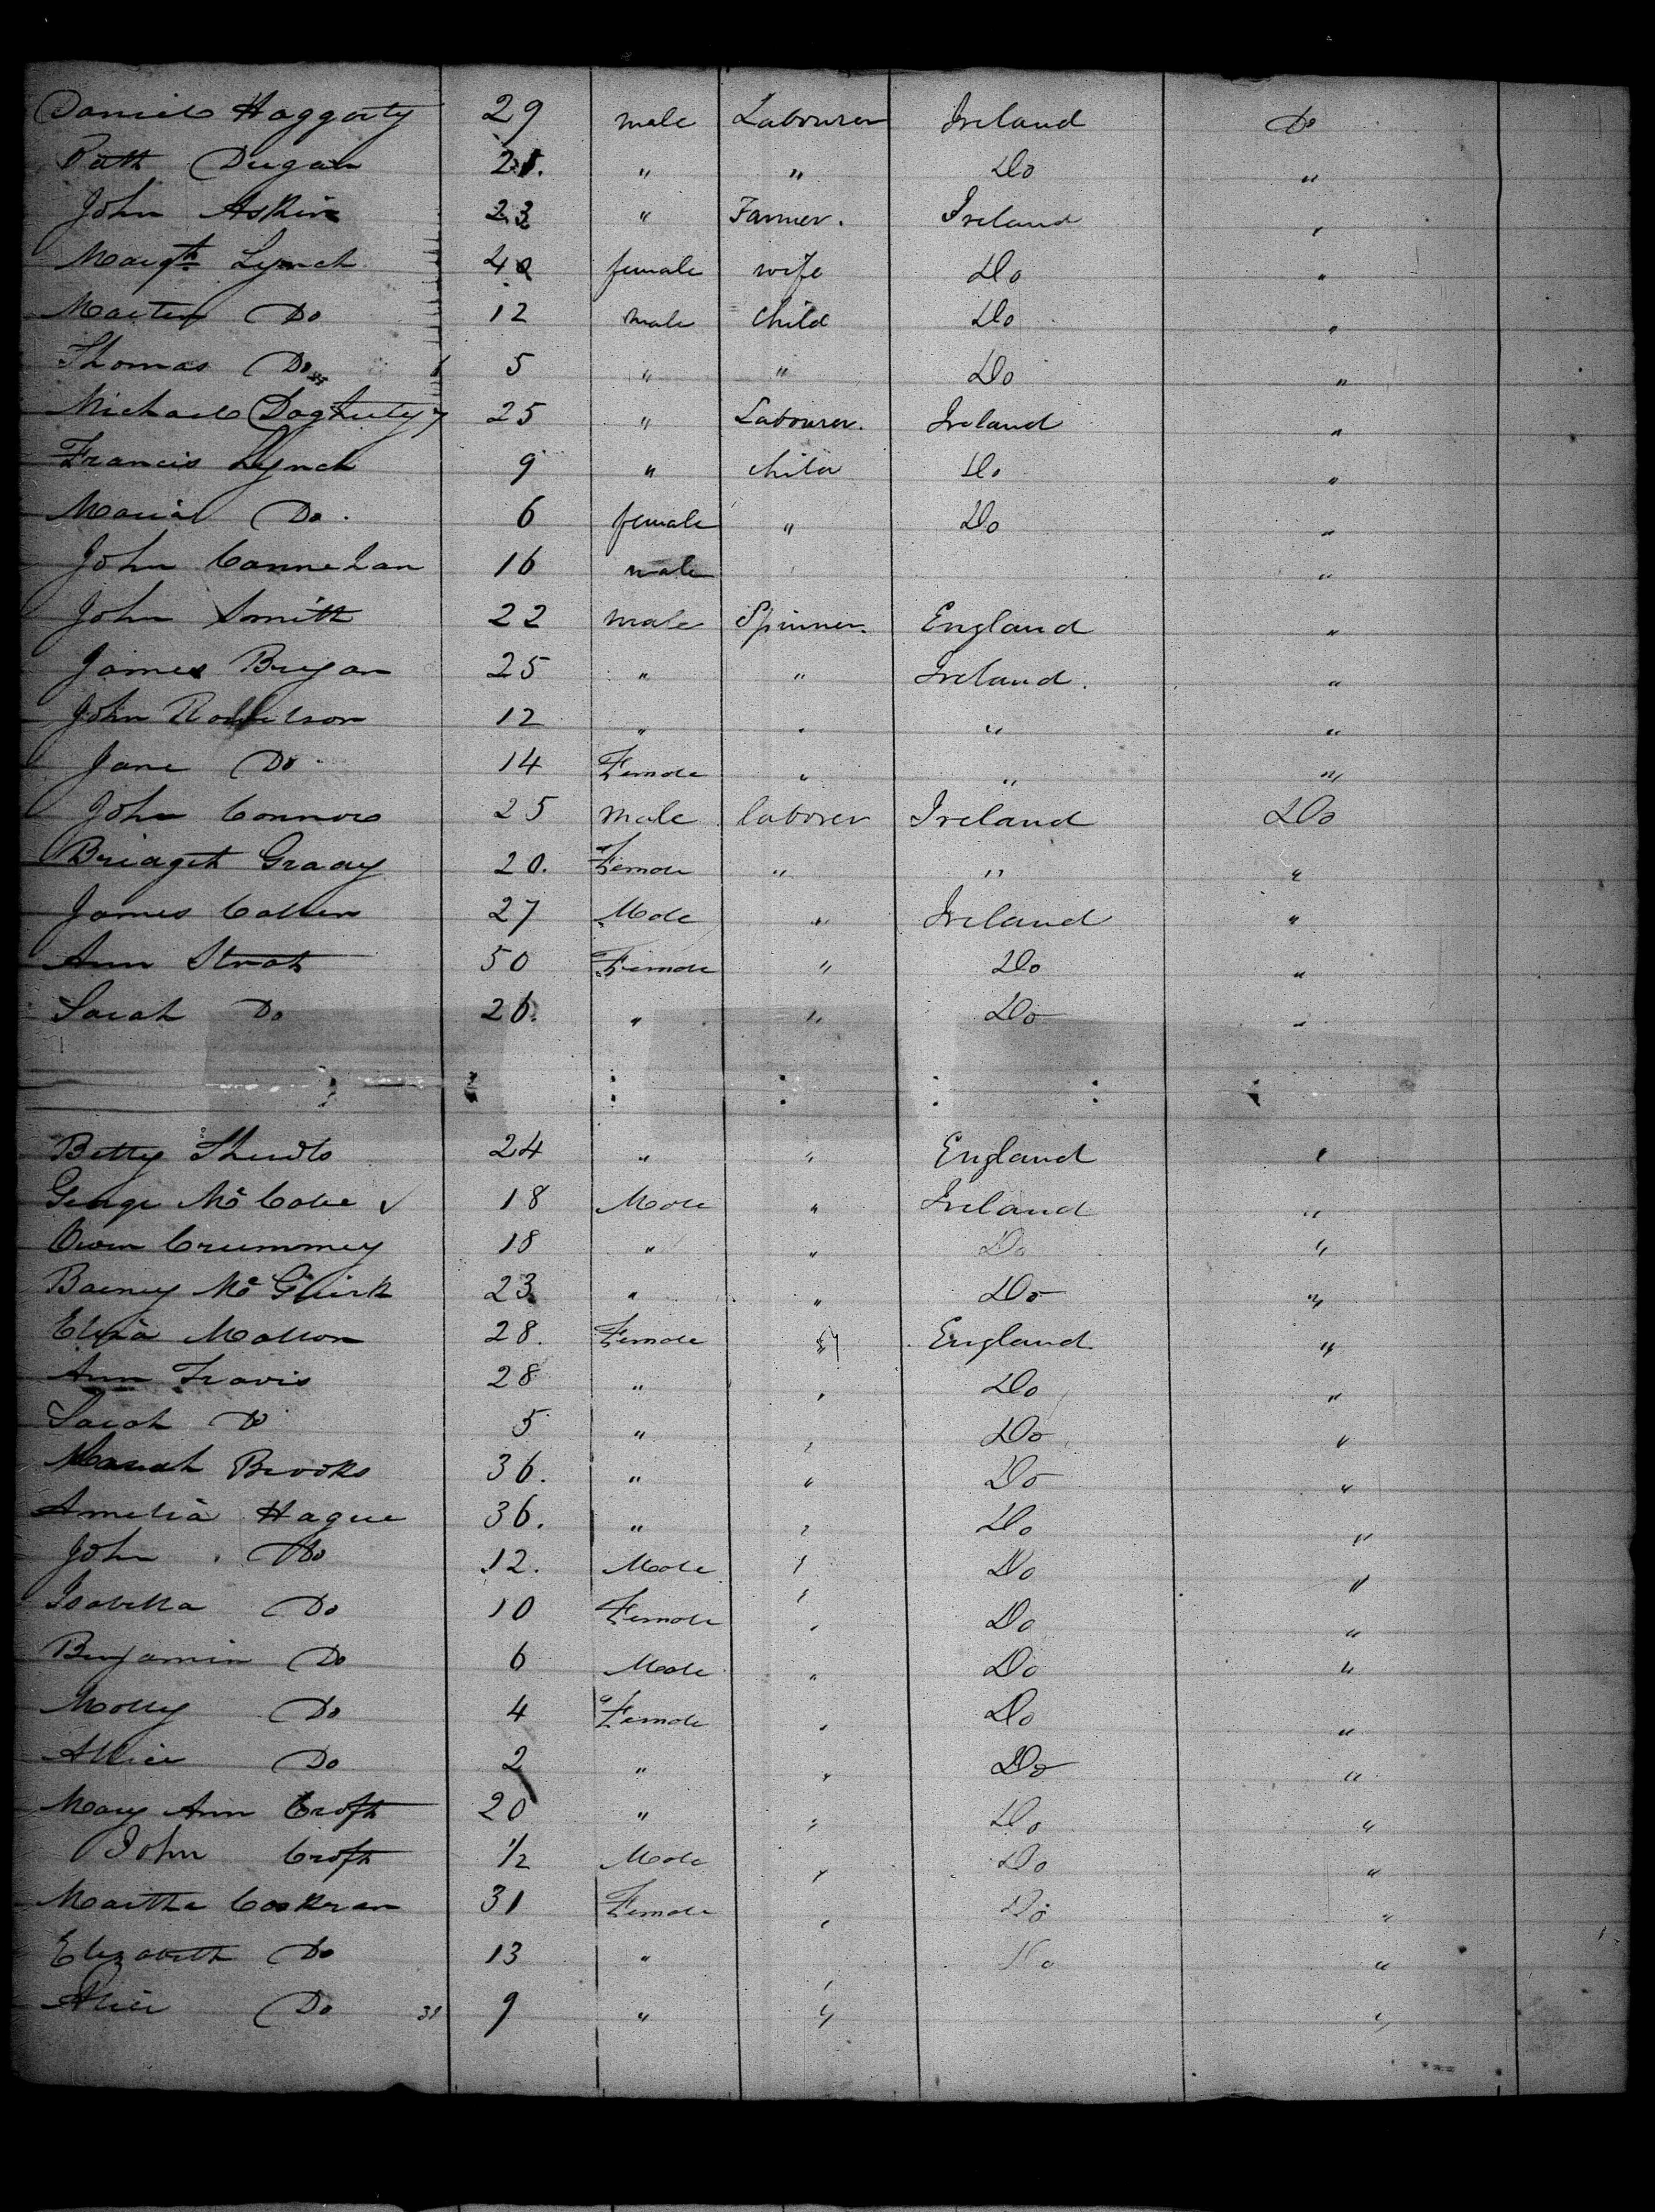 Daniel Haggarty 29 male Labourer Ireland Do
Patk Dugan 21. " " Do "
John Askin 23 " Farmer. Ireland "
Margth Lynch 40 female wife Do "
Martin Do 12 male Child Do "
Thomas Do 5 " " Do "
Michael Dogherty 7 25 " Labourer. Ireland "
Francis Lynch 9 " child Do "
Maria Do 6 female " Do "
John Cannehan 16 male "
John Smith 22 male Spinner. England "
James Bryan 25 " " Ireland. "
John 12 " " " "
Jane Do 14 Female " " "
John Connors 25 male laborer Ireland Do
Bridget Grady 20. Female " " "
James Callen 27 Male " Ireland "
Ann 50 Female " Do "
Sarah Do 26. " " Do "
Betty 24 " " England "
George McCabe ✓ 18 Male " Ireland "
Owen Crummey 18 " " Do "
Barney McGuirk 23 " " Do "
Eliza 28. Female " England "
Ann Travis 28 " " Do "
Sarah Do 5 " " Do "
Brooks 36. " " Do "
Amelia Hague 36. " " Do "
John Do 12. Male " Do "
Isabella Do 10 Female " Do "
Benjamin Do 6 Male " Do "
Molly Do 4 Female " Do "
Allice Do 2 " " Do "
Mary Ann Croft 20 " " Do "
John Croft 1/2 Male " Do "
Martha Cockran 31 Female " Do "
Elizabeth Do 13 " " Do "
Alice Do 9 " " "